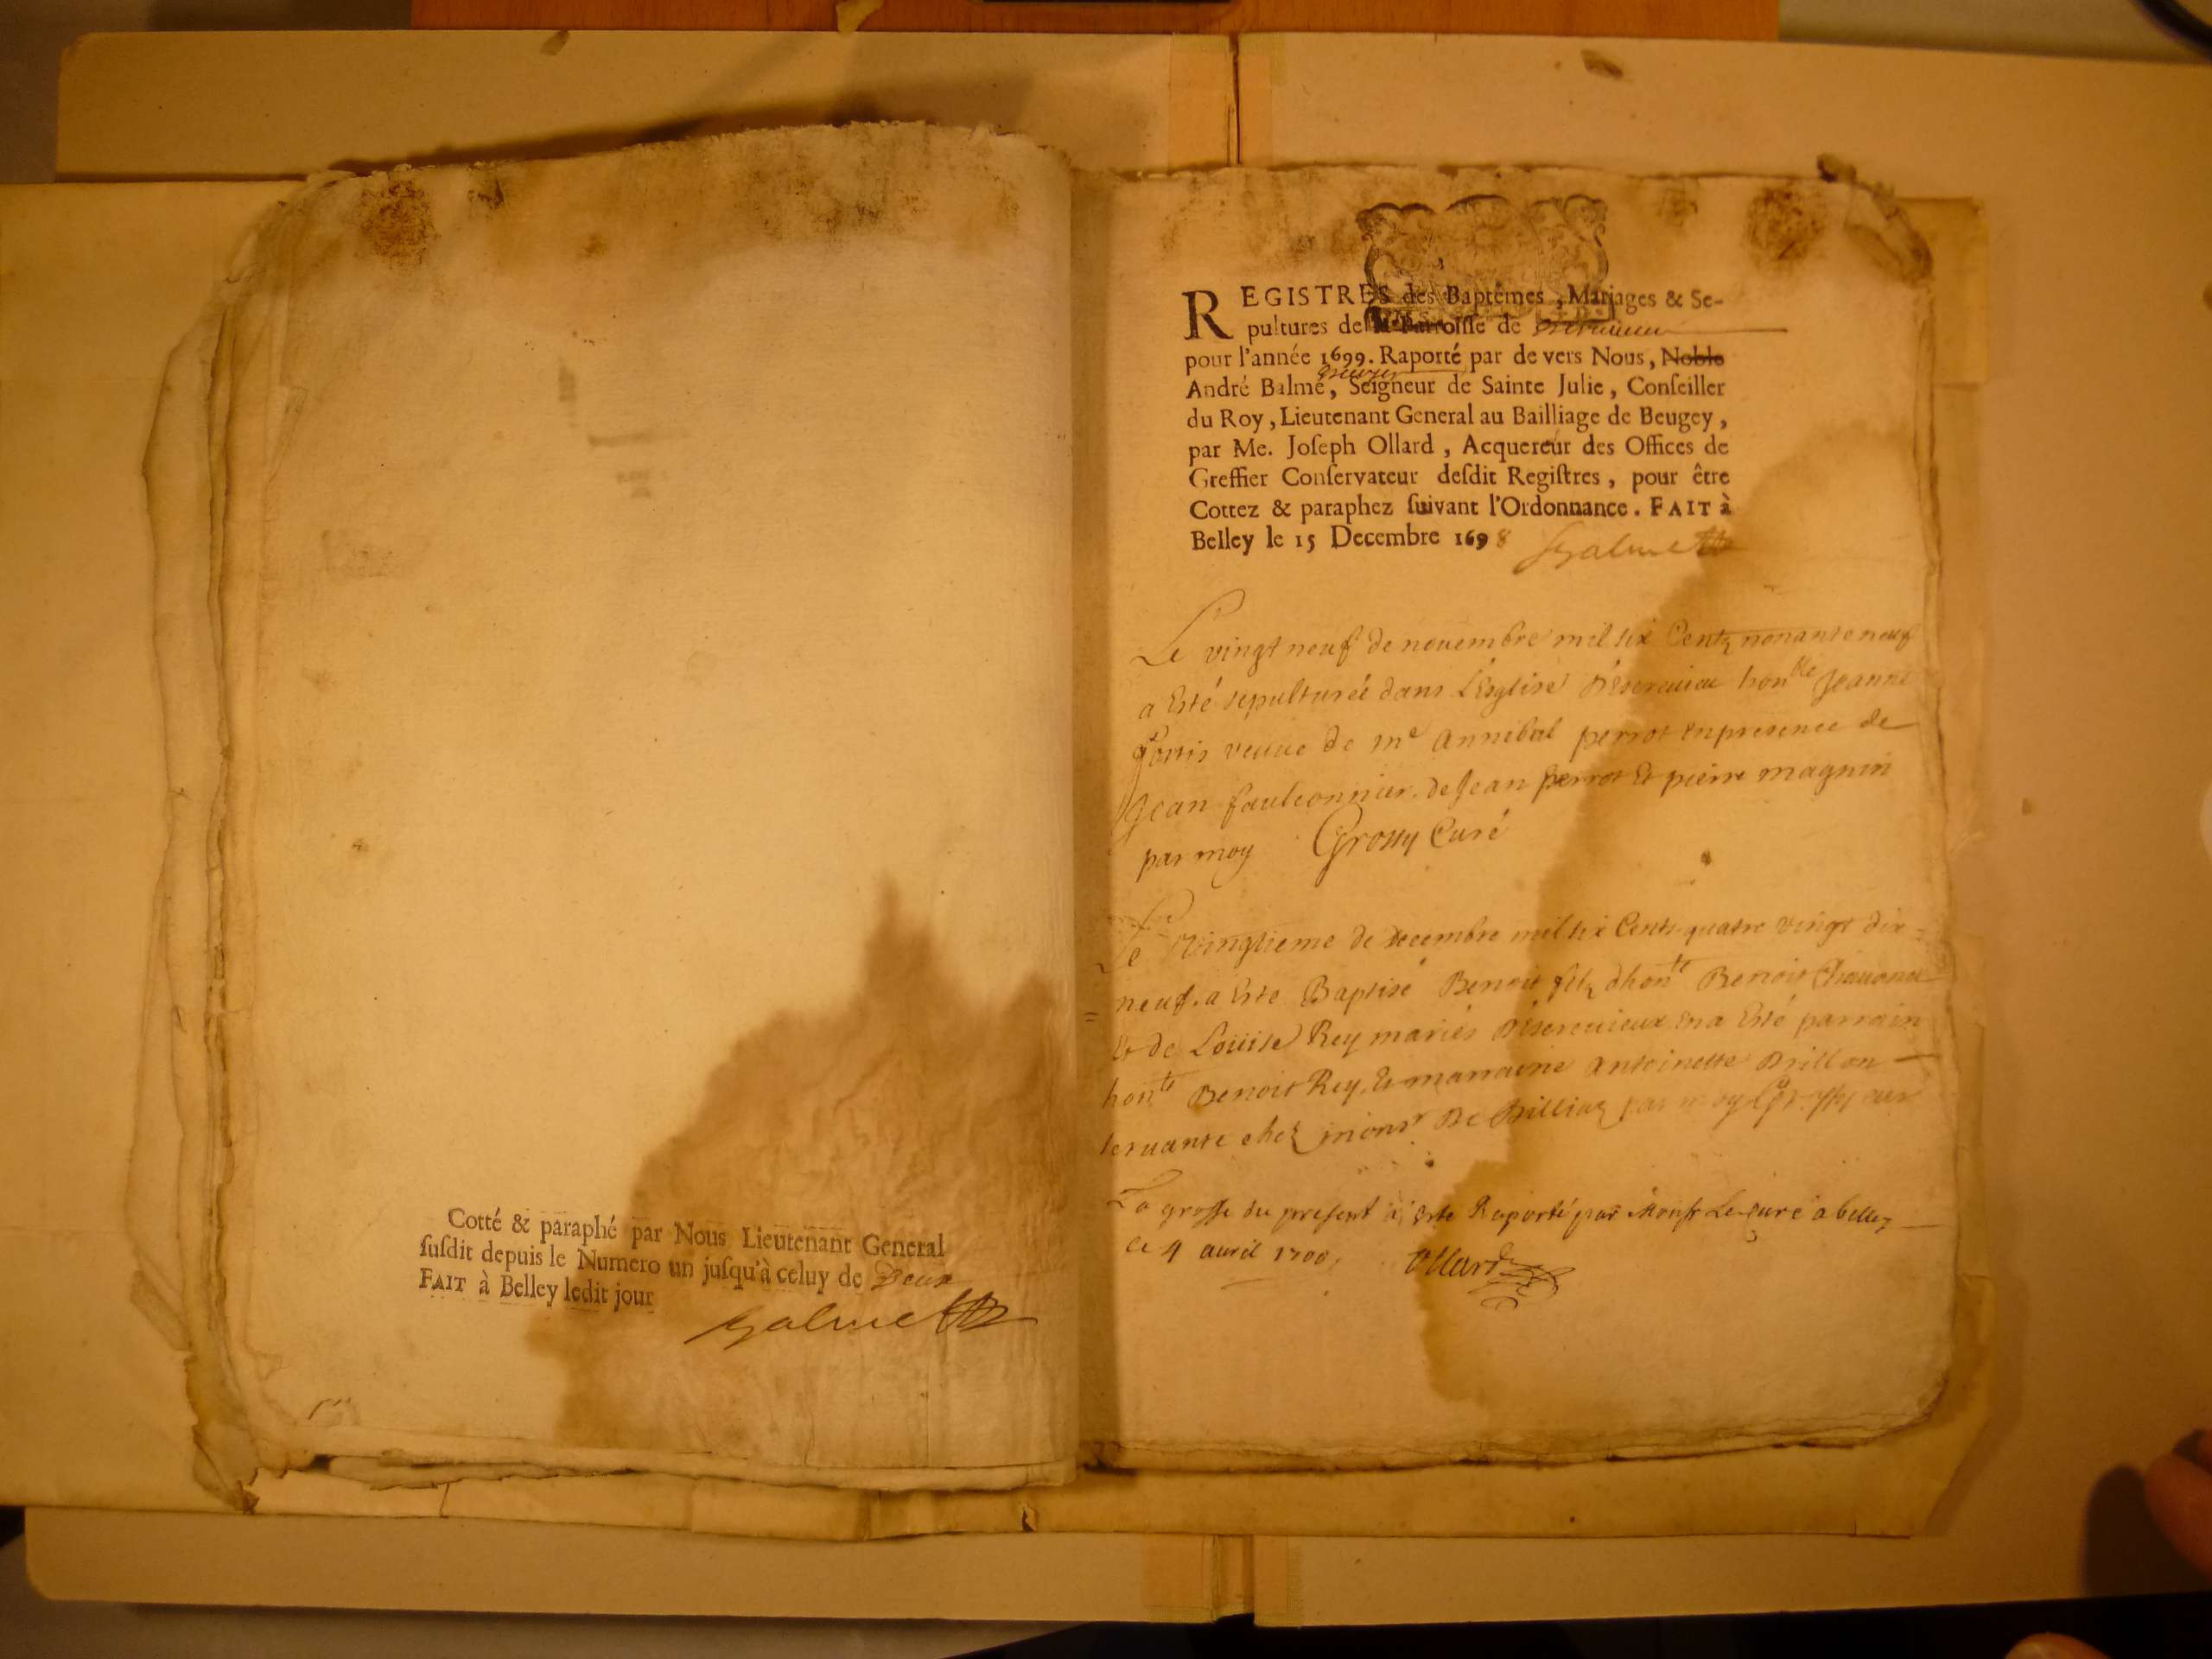 Cotté & paraphé par Nous Lieutenant General
ſuſdit depuis le Numero un juſqu'à celuy de Deux
FAIT à Belley ledit jour
Balme
REGISTRES des Baptêmes, Mariages & Se-
pultures de la Parroiſſe de
pour l'année 1699. Raporté par de vers Nous, Noble
André Balme, Seigneur de Sainte Julie, Conſeiller
du Roy, Lieutenant General au Bailliage de Beugey,
par Me. Joſeph Ollard, Acquereur des Offices de
Greffier Conſervateur deſdit Regiſtres, pour être
Cottez & paraphez ſuivant l'Ordonnance. FAIT à
Belley le 15 Decembre 1698 Balme
Le vingt neuf de nouembre mil six Centz nonante neuf
a Esté sepulturée dans L'Esglise honble Jeanne
veuue de me annibal perrot en presence de
Jean faulconnier. de Jean perrot Et pierre magnin
par moy Grossy Curé
Le vingtieme de decembre mil six Cents quatre vingt dix=
=neuf. a Esté Baptisé Benoit filz d'honte Benoit
Et de Loüise Rey mariés En a Esté parrain
honte Benoit Rey, Et marraine antoinette Brillon
seruante chez monsr De par moy Grossy cur
La grosse du present a este Raporté par Monsr Le curé a belley
ce 4 auril 1700, Ollard